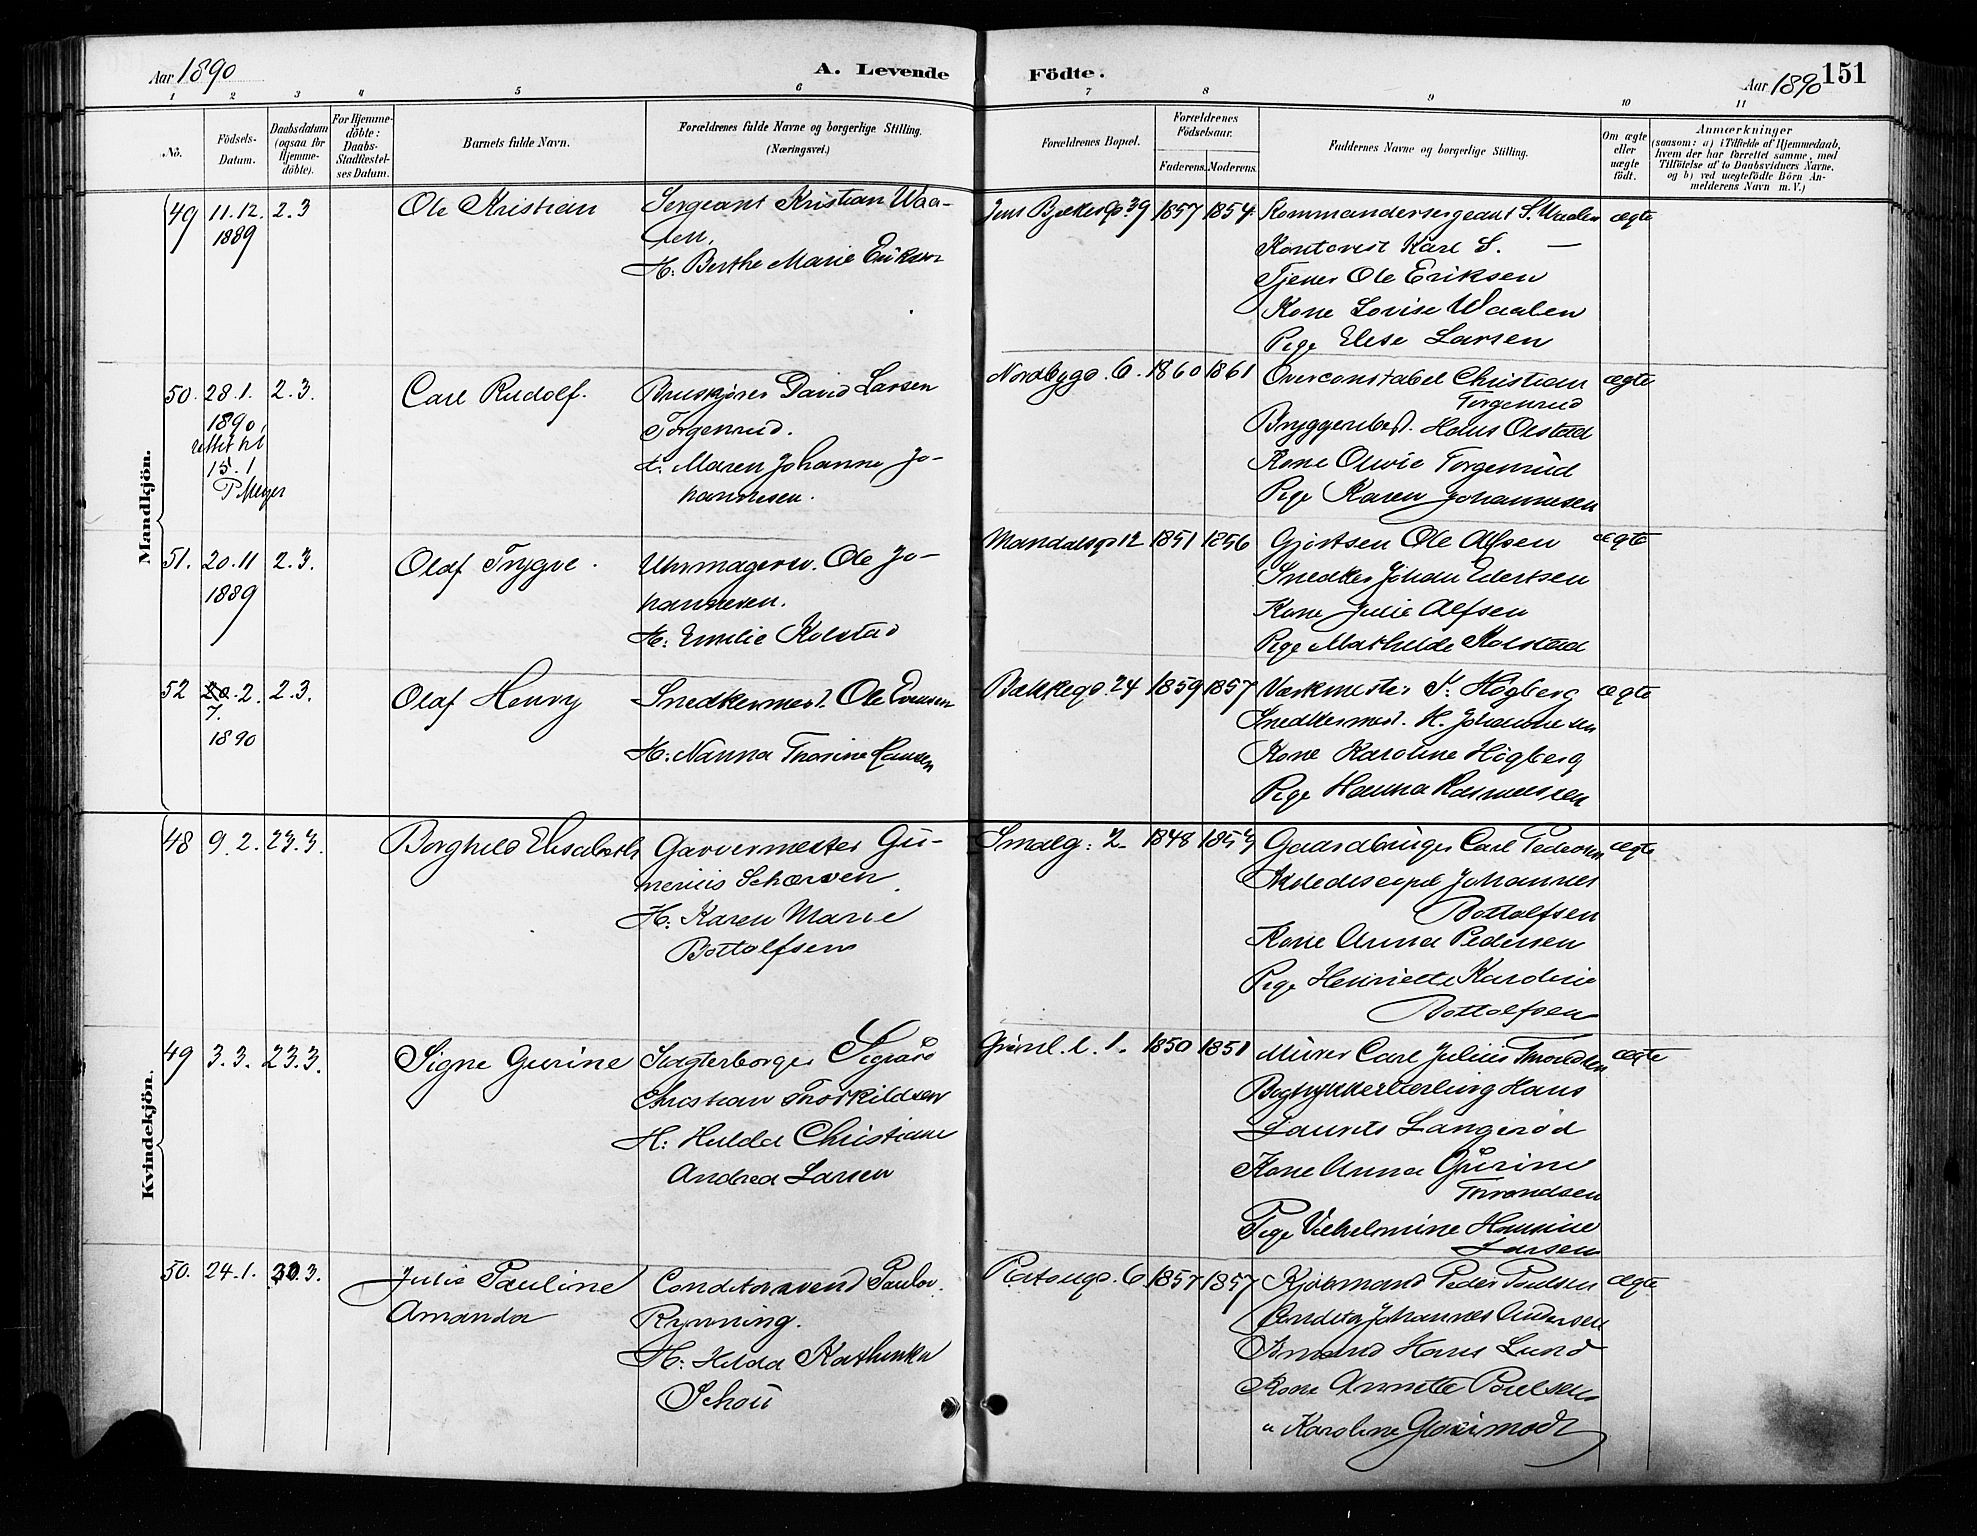 Aar 1890
A. Levende Födte.
Aar 1890 151
1 2 3 4 5 6 7 8 9 10 11
No.
Födsels-Datum.
Daabsdatum (ogsaa for Hjemme-döbte).
For Hjemme-döbte: Daabs-Stadfestel-ses Datum.
Barnets fulde Navn.
Forældrenes fulde Navne og borgerlige Stilling. (Næringsvei.)
Forældrenes Bopæl.
Forældrenes Födselsaar.
Faderens. Moderens.
Faddernes Navne og borgerlige Stilling.
Om ægte eller uægte födt.
Anmærkninger
(saasom: a) i Tilfælde af Hjemmedaab,
hvem der har forrettet samme, med
Tilföielse af to Daabsvidners Navne,
og b) ved uægtefödte Börn An-
melderens Navn m. V.)
Mandkjön.
49 11.12. 2.3 Ole Kristian Sergeant Kristian Waa- Jens Bjelkesg. 39 1857 1854 Kommandersergeant S. Waalen ægte
1889 len,
H: Berthe Marie Eriksen
Kontorist Karl S. —
Tjener Ole Eriksen
Kone Lovise Waalen
Pige Elise Larsen
50. 28.1. 2.3. Carl Rudolf. David Larsen Nordbygd. 6. 1860 1861 Overconstabel Christian ægte
1890, Torgenrud. Torgenrud
rettet til
15.1
P Meyer
H: Maren Johanne Jo-
hannesen.
Hans Olstad
Kone Olivie Torgenrud
Pige Karen Johannesen
51. 20.11 2.3. Olaf Trygve. Uhrmagersv. Ole Jo- Mandalsg. 12 1851 1856 Gjörtsen Ole Alfsen ægte
1889 hannesen.
H: Emilie Kolstad
Snedker Johan Edertsen
Kone Julie Alfsen
Pige Mathilde Kolstad
52 20.2. 2.3. Olaf Henry Snedkermest. Ole Evensen Bakkegd. 24 1859 1857 Værkmester Högberg ægte
7.
1890
H: Nanna Thorine Hansen
Snedkermest. H. Johannesen
Kone Karoline Högberg
Pige Hanna Rasmussen
Kvindekjön.
48 9.2. 23.3. Borghild Elisabeth Garvermester Gu- Smalg: 2 1848 1854 Gaardbruger Carl Pedersen ægte
nerius Schærven
H: Karen Marie
Bottolfsen
Skoledicipel Johannes
Bottolfsen
Kone Anna Pedersen
Pige Henriette Karoline
Bottolfsen
49 3.3. 23.3. Signe Gurine Slagterborger Sigvard Grünl. l. 1. 1850 1851 Murer Carl Julius ægte
Christian Thorkildsen
H: Hulda Christiane
Andrea Larsen
Hans
Laurits Langeröd
Kone Anna Gurine
Pige Vilhelmine Hansine
Larsen
50. 24.1. 30.3. Julie Pauline Conditorsvend Paulus Platougd. 6. 1857 1857 Kjöbmand Peder Poulsen ægte
Amanda Rynning.
H: Hilda Kathinka
Schou
Conditor Johannes Andersen
Hans Lund
Kone Annette Poulsen
" Karoline